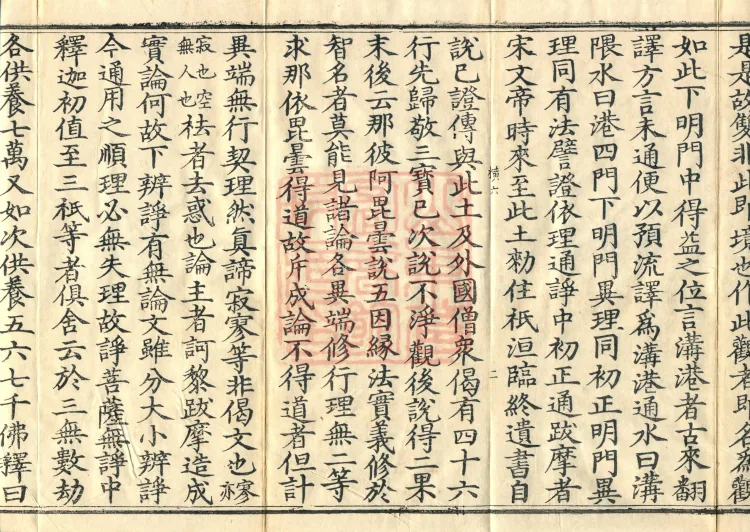 是是故雙非此即境也作此觀者即名爲觀
如此下明門中得益之位言溝港者古來翻
譯方言未通便以預流譯爲溝港通水曰溝
隈水曰港四門下明門異理同初正明門異
理同有法譬證依理通諍中初正通跋摩者
宋文帝時來至此土勑住祇洹臨終遺書自
說已證傳與此土及外國僧衆偈有四十六
行先歸敬三寶已次說不淨觀後說得二果
末後云那彼阿毘曇說五因緣法實義修於
智名者莫能見諸論各異端修行理無二等
求那依毘曇得道故斥成論不得道者但計
異端無行契理然眞諦寂寥等非偈文也寥亦
寂也空無人也祛者去惑也論主者訶黎跋摩造成
實論何故下辨諍有無論文雖分大小辨諍
今通用之順理必無失理故諍菩薩無諍中
釋迦初值至三祇等者俱舍云於三無數劫
各供養七萬又如次供養五六七千佛釋曰
橫六
二